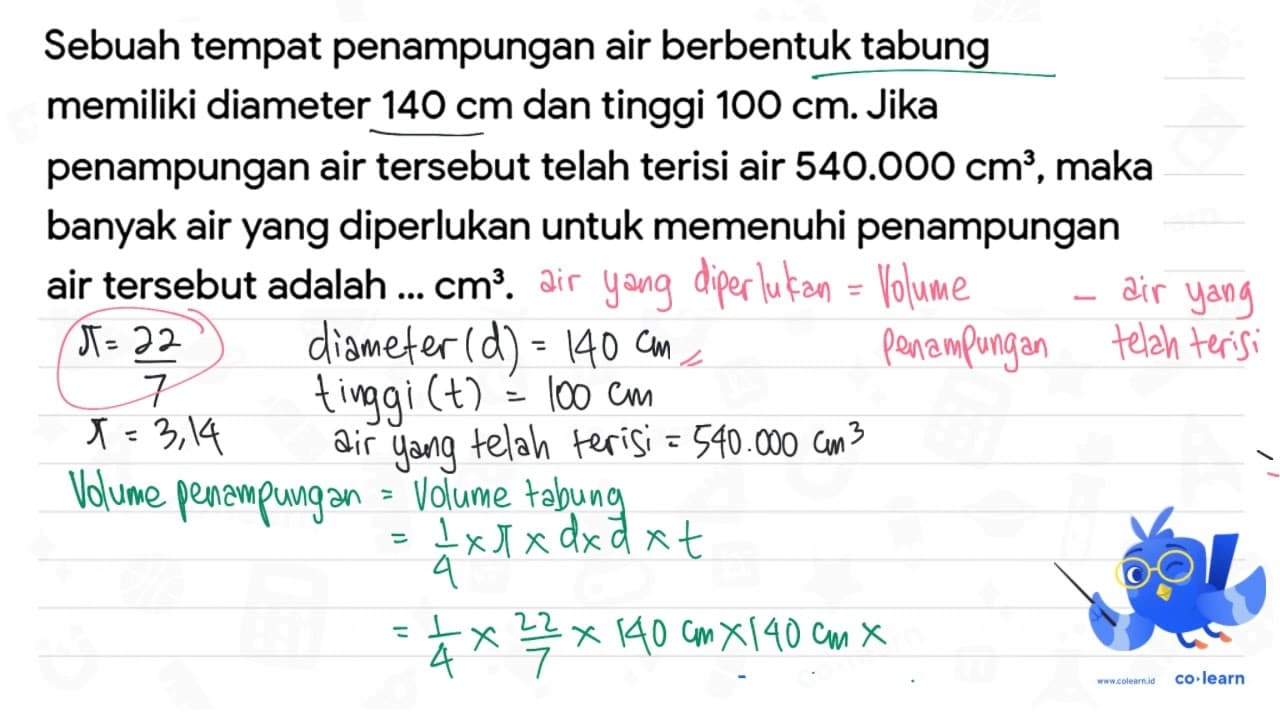 Sebuah tempat penampungan air berbentuk tabung
memiliki diameter 140 cm dan tinggi 100 cm. Jika
penampungan air tersebut telah terisi air 540.000 cm³, maka
banyak air yang diperlukan untuk memenuhi penampungan
air tersebut adalah ... cm³. air yang diperlukan = Volume penampungan - air yang telah terisi
π = 22/7 diameter (d) = 140 cm
tinggi (t) = 100 cm
π = 3,14 air yang telah terisi = 540.000 cm³
Volume penampungan = Volume tabung
= 1/4 x π x d x d x t
= 1/4 x 22/7 x 140 cm x 140 cm x
www.colearn.id co·learn